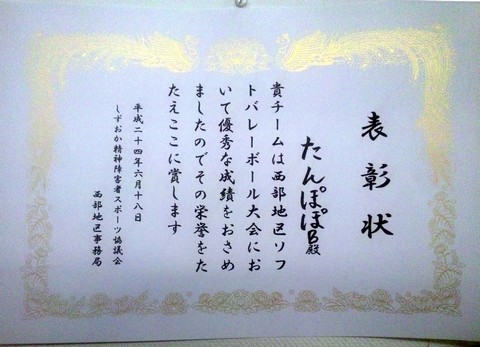 表彰状
たんぽぽB殿
貴チームは西部地区ソフ
トバレーボール大会にお
いて優秀な成績をおさめ
ましたのでその栄誉をた
たえここに賞します
平成二十四年六月十八日
しずおか精神障害者スポーツ協議会
西部地区事務局